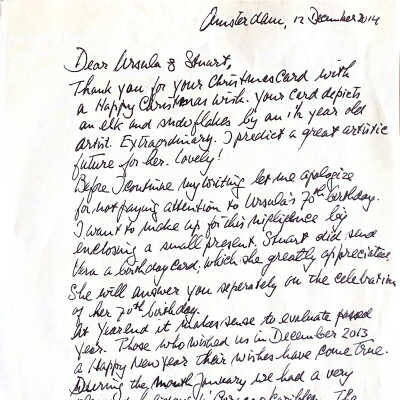 Amsterdam, 12 December 2014
Dear Ursula & Stuart,
Thank you for your Christmas Card with
a Happy Christmas wish. Your card depicts
an elk and snowflakes by an 11½ year old
artist. Extraordinary. I predict a great artistic
future for her. Lovely!
Before I continue my writing let me apologize
for not paying attention to Ursula's 70th birthday.
I want to make up for this negligence by
enclosing a small present. Stuart did send
Vera a birthday card, which she greatly appreciated.
She will answer you seperately on the celebration
of her 70th birthday.
At Year end it makes sense to evaluate passed
Year. Those who wished us in December 2013
a Happy New Year their wishes have come true.
During the month January we had a very